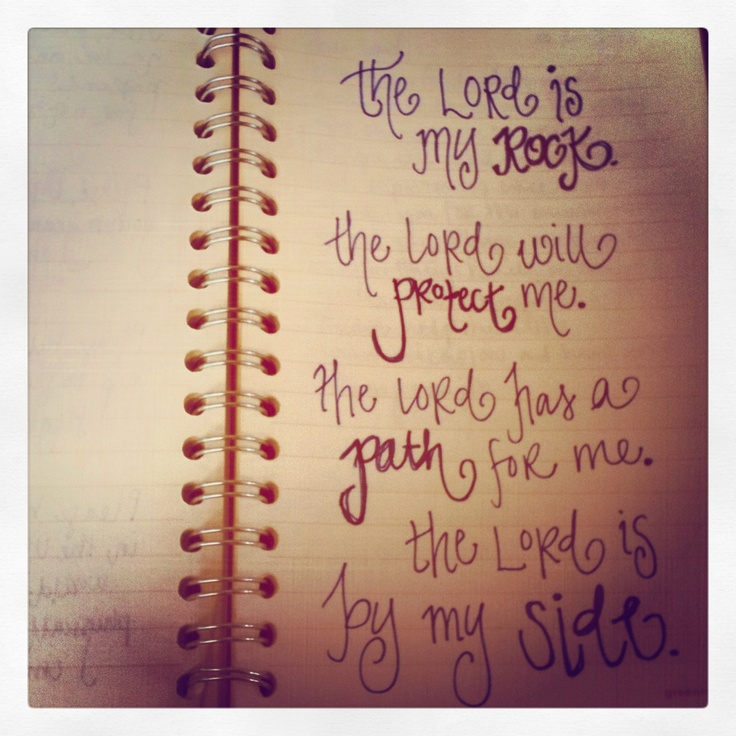 the LORD is
my ROCK.
the LORD will
protect me.
the LORD has a
path for me.
the LORD is
by my side.